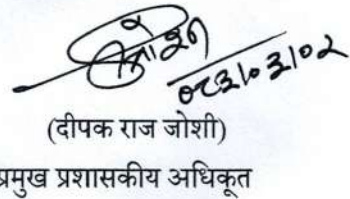 ०८३।०३।०२
(दीपक राज जोशी)
प्रमुख प्रशासकीय अधिकृत